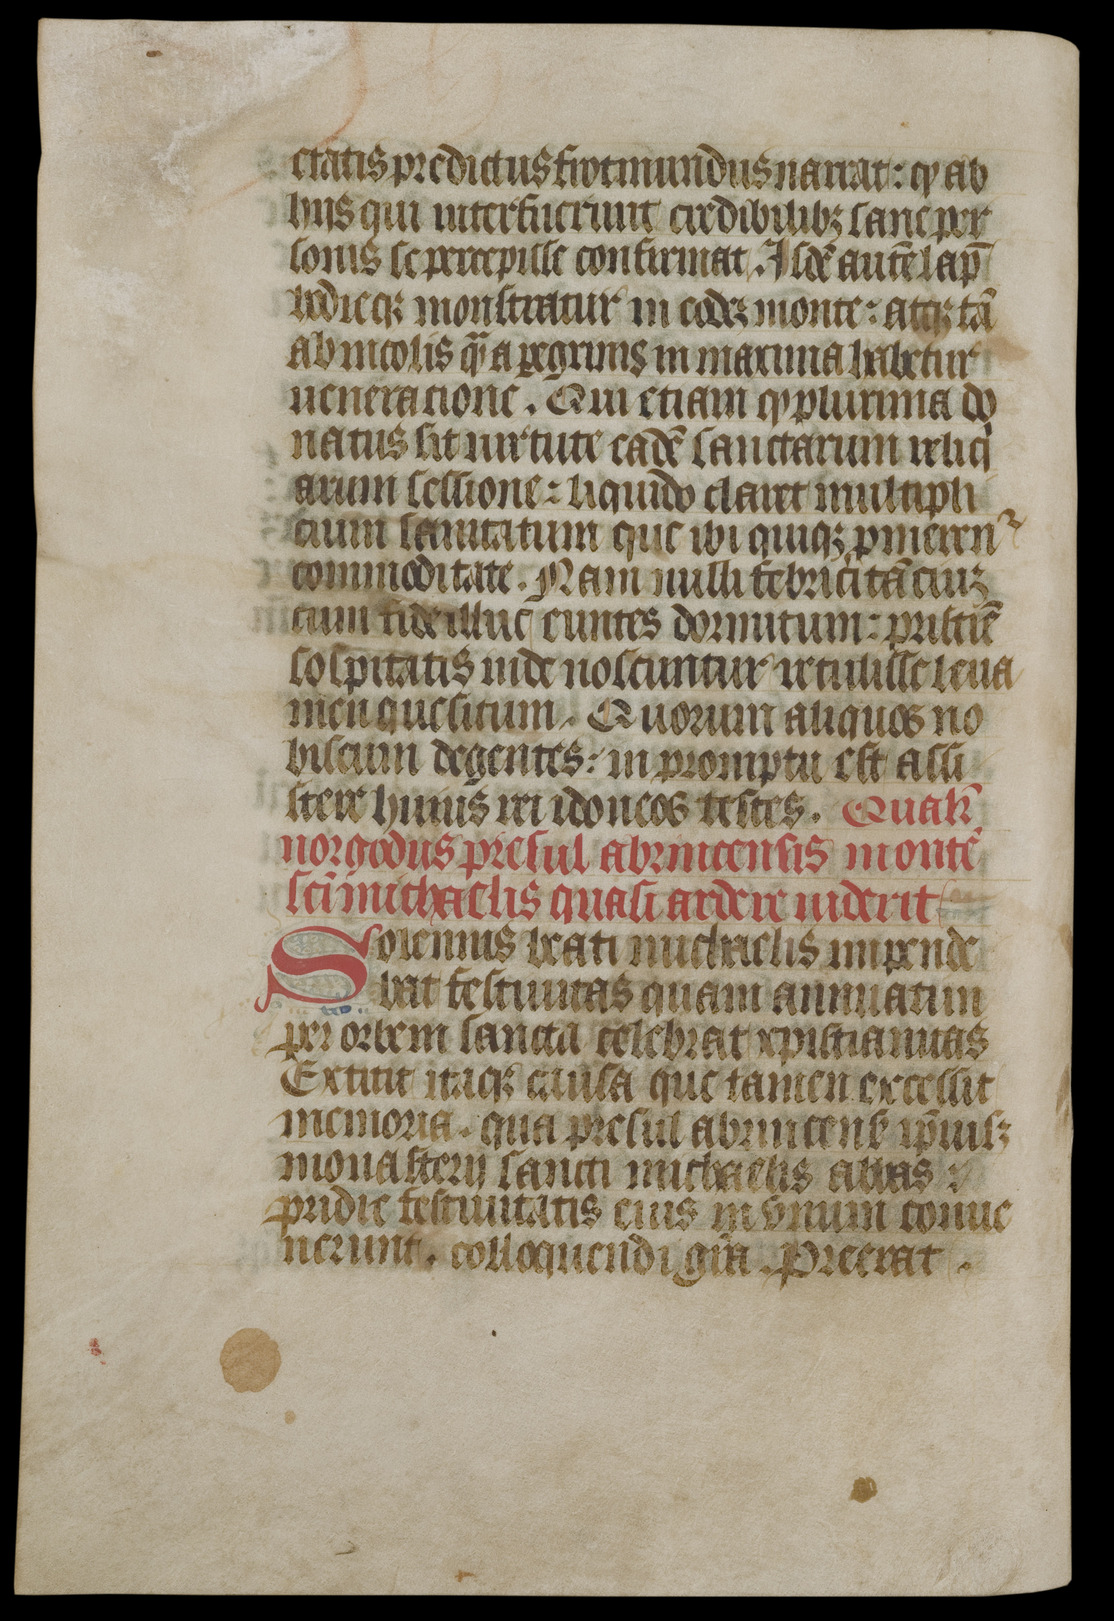 ctatis predictus frotmundus narrat: qp ab
hijs qui interfuerunt credibilibꝫ sane per
sonis se percepisse confirmat. Isdē autē lap̄
hodieqꝫ monstratur in eodeꝫ monte: atqꝫ tā
ab incolis q̄ a peregrinis in maxima habetur
ueneratione. Qui etiam qp plurima do
natus sit uirtute eadē sanctarum reliq̇
arum sessione: liquido claret multipli
cium sanitatum que ibi quiqꝫ p̱merent᷑
commoditate. Nam nulli febricitāciuꝫ
cum fide illuc euntes dormitum: pristiē
sospitatis inde noscuntur retulisse leua
men quesitum. Quorum aliquos no
biscum degentes: in promptu est assi
stere huius rei idoneos testes. Qualr̄
norgodus presul abrincensis montē
sc̄i michaelis quasi ardere uiderit
Solennis beati michaelis impende
bat festiuitas quam annuatim
per orbem sancta celebrat xpistianitas
Extitit itaqꝫ causa que tamen excessit
memoria. qua presul abrincens̄ ip̄iusqꝫ
monasterij sancti michaelis abbas:
pridie festiuitatis eius in vnum conue
nerunt. colloquendi gr̄a. Preerat.